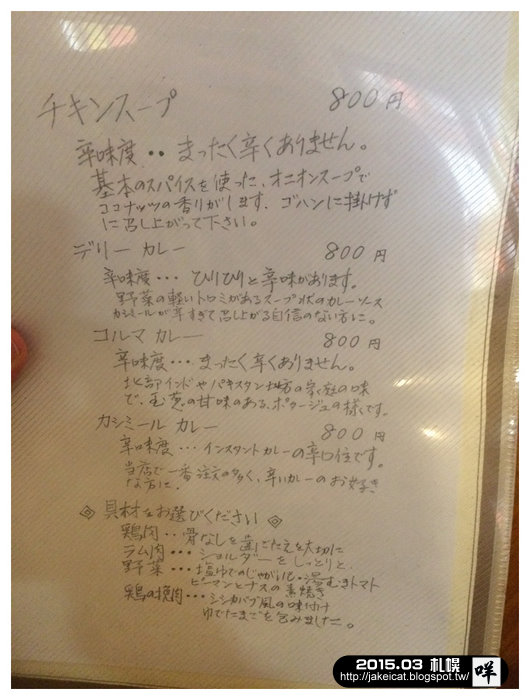 チキンスープ 800円
辛味度・・まったく辛くありません。
基本のスパイスを使った、オニオンスープで
ココナッツの香りがします。ゴハンに掛けず
に召し上がって下さい。
デリー カレー 800円
辛味度・・・ひりひりと辛味があります。
野菜の軽いトロミがあるスープ状のカレーソース
カシミールが辛すぎて召し上がる自信のない方に。
コルマ カレー 800円
辛味度・・・まったく辛くありません。
北部インドやパキスタン地方の家庭の味
で、玉葱の甘味のある、ポタージュの様です。
カシミール カレー 800円
辛味度・・・インスタントカレーの辛口位です。
当店で一番注文の多く、辛いカレーのお好き
な方に。
◎ 具材をお選びください ◎
鶏肉・・骨なしを歯ごたえを大切に
ラム肉・・・ショルダーをしっとりと
野菜・・・塩ゆでのじゃがいも・湯むきトマト
ピーマンとナスの素焼き
鶏の挽肉・・・シシカバブ風の味付け
ゆでたまごを包みました。
2015.03 札幌
http://jakeicat.blogspot.tw/
咩